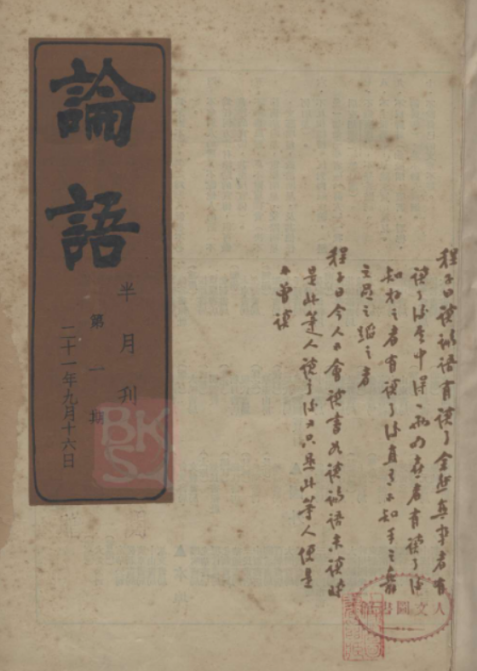 論語
半月刊
第一期
二十一年九月十六日
程子曰讀論語有讀了全然無事者有
讀了後其中得一兩句喜者有讀了後
知好之者有讀了後直有不知手之舞
之足之蹈之者
程子曰今人不會讀書如讀論語未讀時
是此等人讀了後又只是此等人便是
不曾讀
人文圖書館
BKS